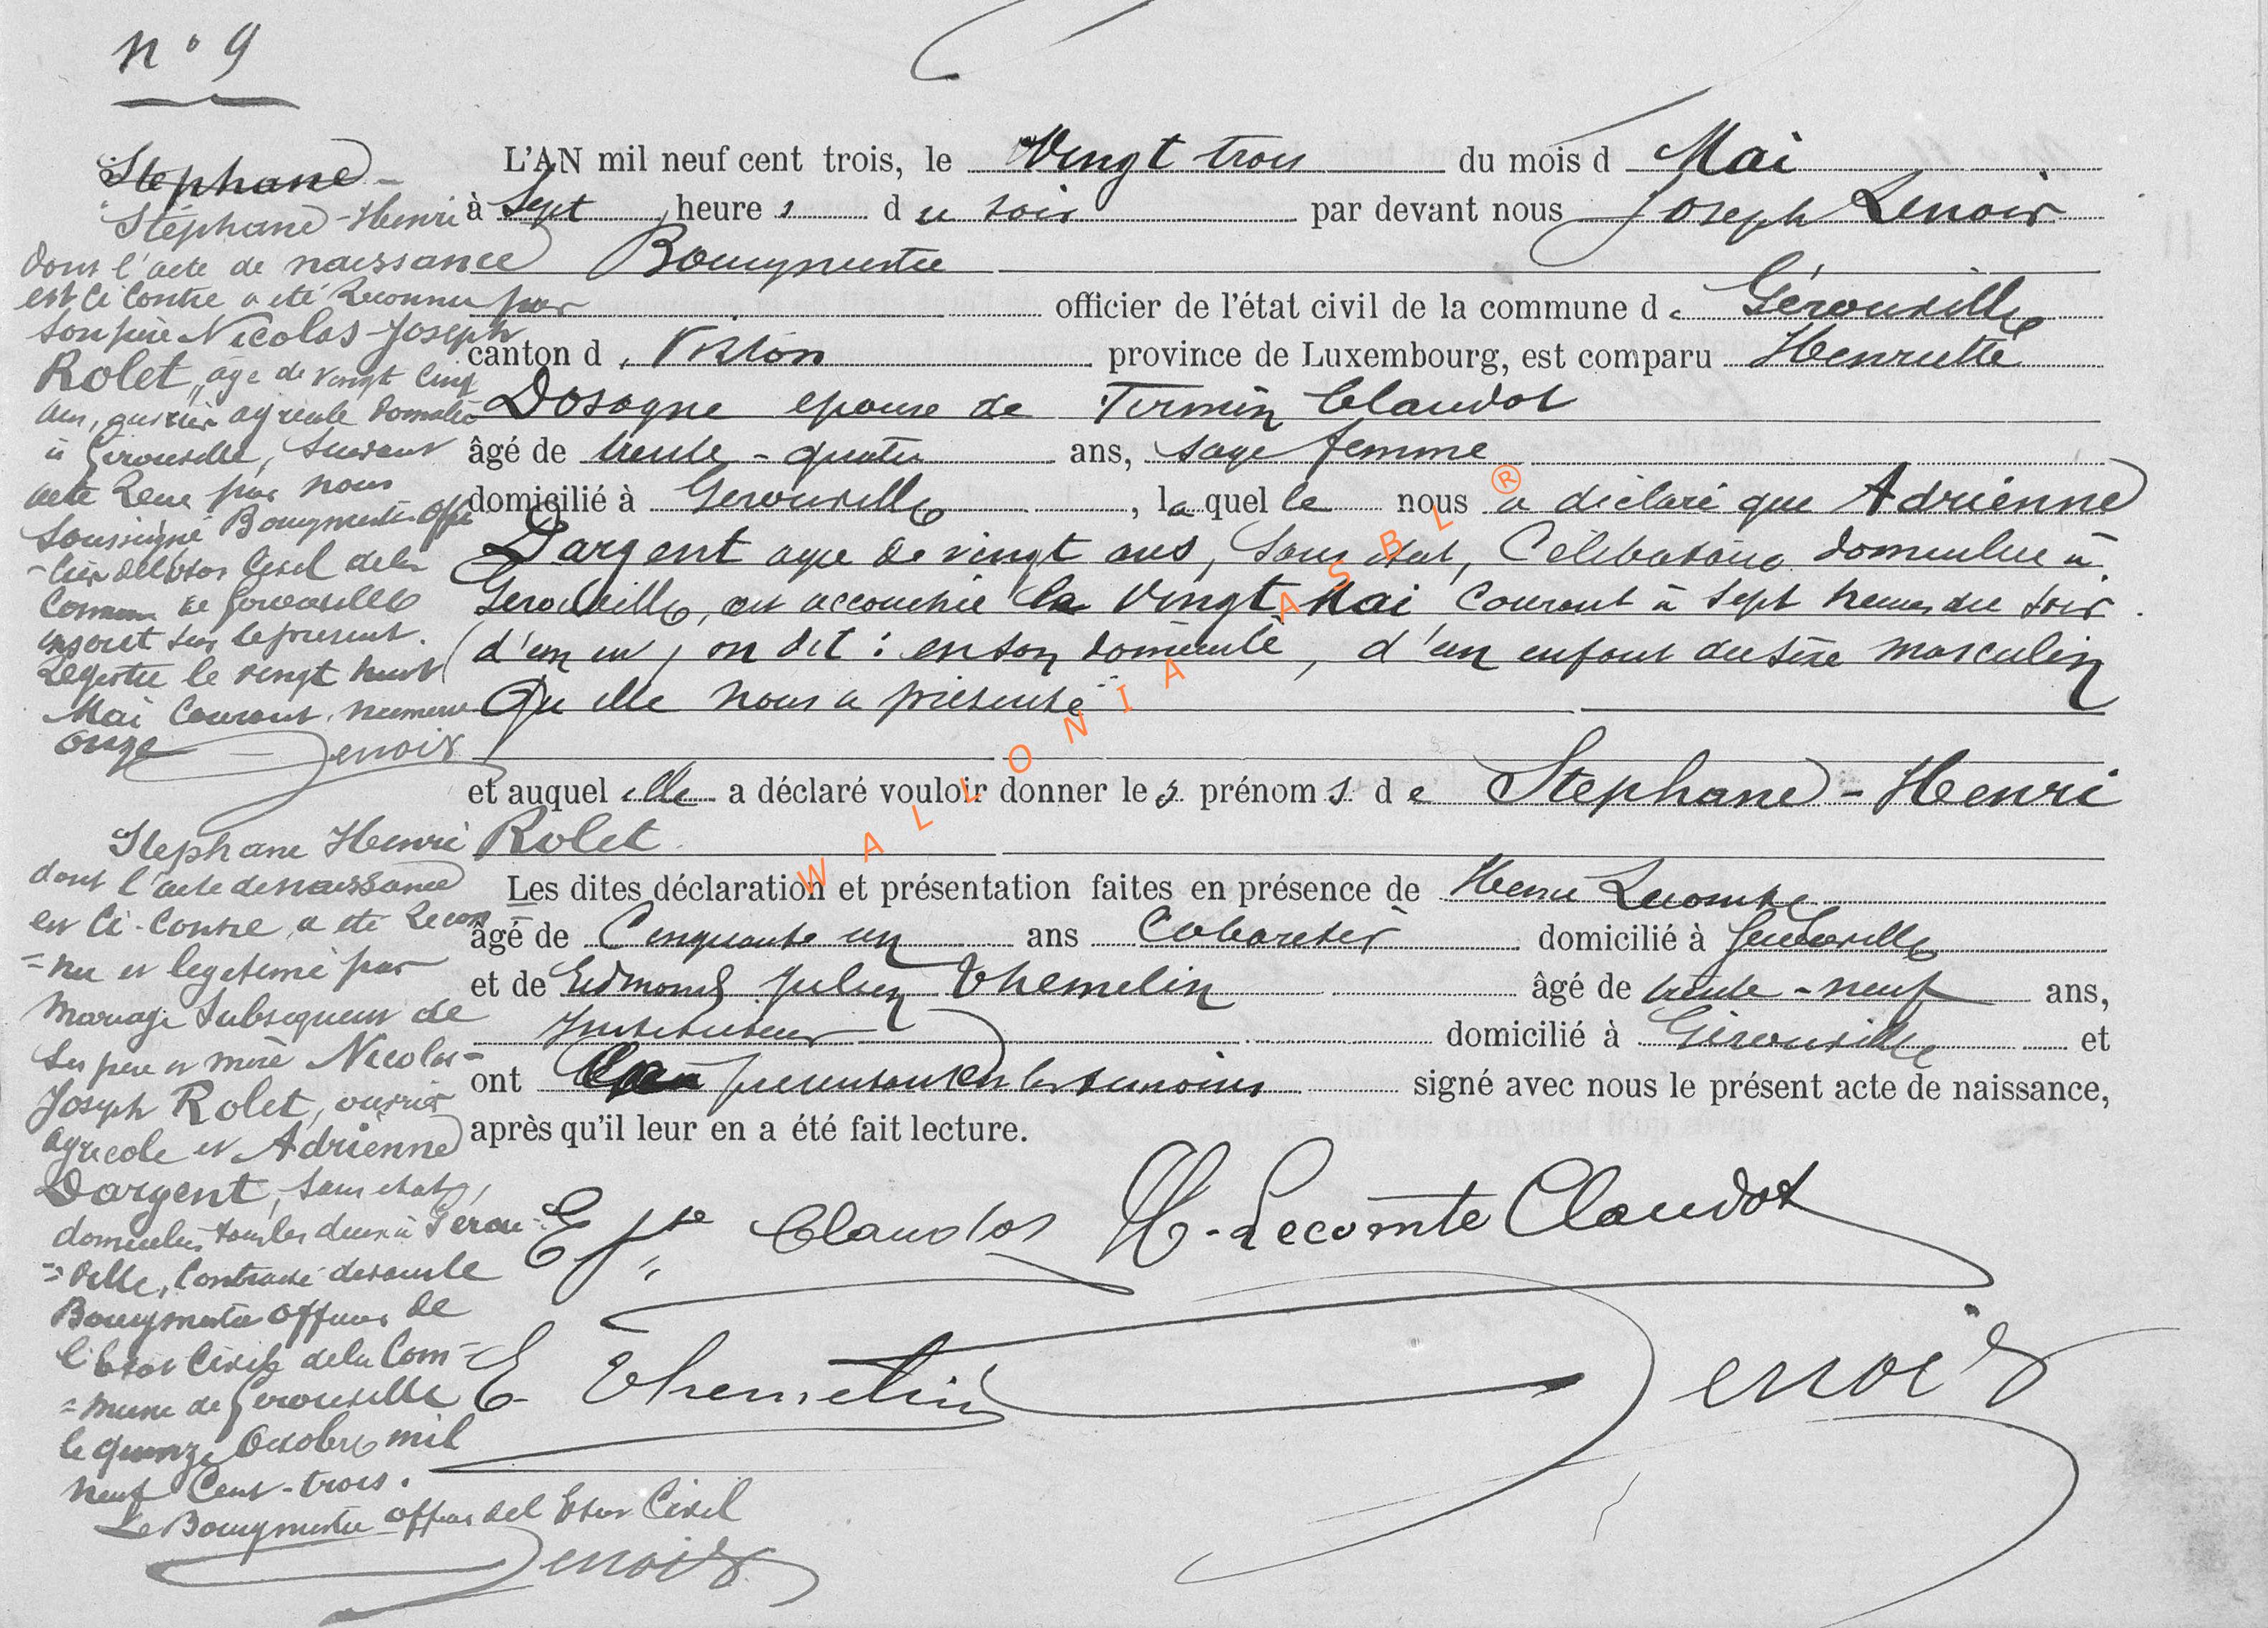 n° 9
Stéphane-
Stéphane-Henri
dont l'acte de naissance
est ci contre a été reconnu par
son père Nicolas-Joseph
Rolet, âgé de vingt cinq
ans, ouvrier agricole domicilié
à Gérouville, suivant
acte reçu par nous
soussigné Bourgmestre Offi
-cier del'Etat Civil dela
Commune de Gérouville
inscrit sur le présent
Registre le vingt huit
Mai courant, numéro
onze Lenoir
Stéphane Henri
dont l'acte de naissance
est ci-contre, a été recon
=nu et légitimé par
mariage subséquent de
ses père et mère Nicolas-
Joseph Rolet, ouvrier
agricole et Adrienne
Dargent, sans état,
domiciliés tous les deux à Gérou-
=ville, contracté devant le
Bourgmestre officier de
l'Etat Civil dela Com-
=mune de Gérouville
le quinze Octobre mil
neuf Cent-trois.
Le Bourgmestre officier del Etat Civil
Lenoir
L'AN mil neuf cent trois, le Vingt trois du mois d Mai
à Sept heure s d u soir par devant nous Joseph Lenoir
Bourgmestre
officier de l'état civil de la commune d e Gérouville
canton d e Virton province de Luxembourg, est comparu Henriette
Dosogne épouse de Firmin Claudot
âgé de trente-quatre ans, sage femme
domicilié à Gérouville, la quel le nous a déclaré que Adrienne
Dargent agée de vingt ans, sans état, Célibataire domiciliée à
Gérouville, est accouchée le Vingt Mai courant à sept heures du soir
d'un en, on dit : en son domicile, d'un enfant du sexe masculin
Qu elle nous a présenté
et auquel elle a déclaré vouloir donner le s prénom s d e Stéphane-Henri
Rolet
Les dites déclaration et présentation faites en présence de Henri Lecomte
âgé de Cinquante un ans Cabaretier domicilié à Gérouville
et de Edmond Julien Themelin âgé de trente-neuf ans,
Instituteur domicilié à Gérouville et
ont les témoins signé avec nous le présent acte de naissance,
après qu'il leur en a été fait lecture.
Ese Claudot H. Lecomte Claudot
E Themelin Lenoir
WALLONIA ASBL ®